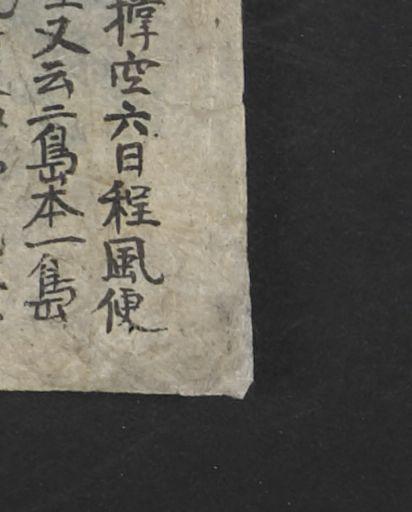 撑空六日程風便
又云二島本一島